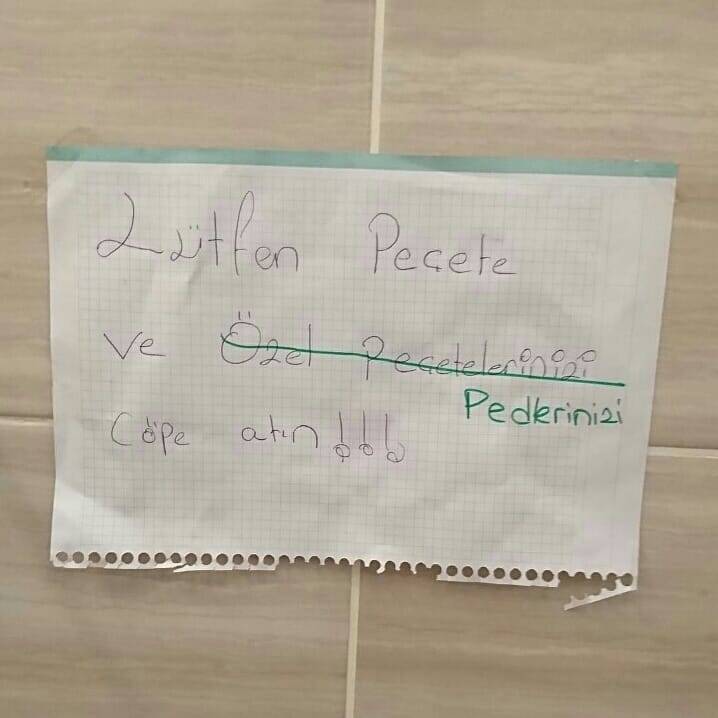 Lütfen Peçete
ve Özel Peçetelerinizi
Pedlerinizi
Çöpe atın !!!